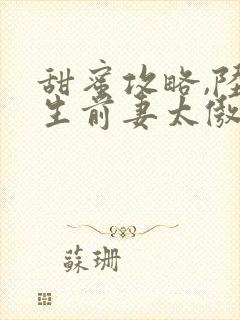 甜蜜攻略,陸
生前妻太傲
蘇珊